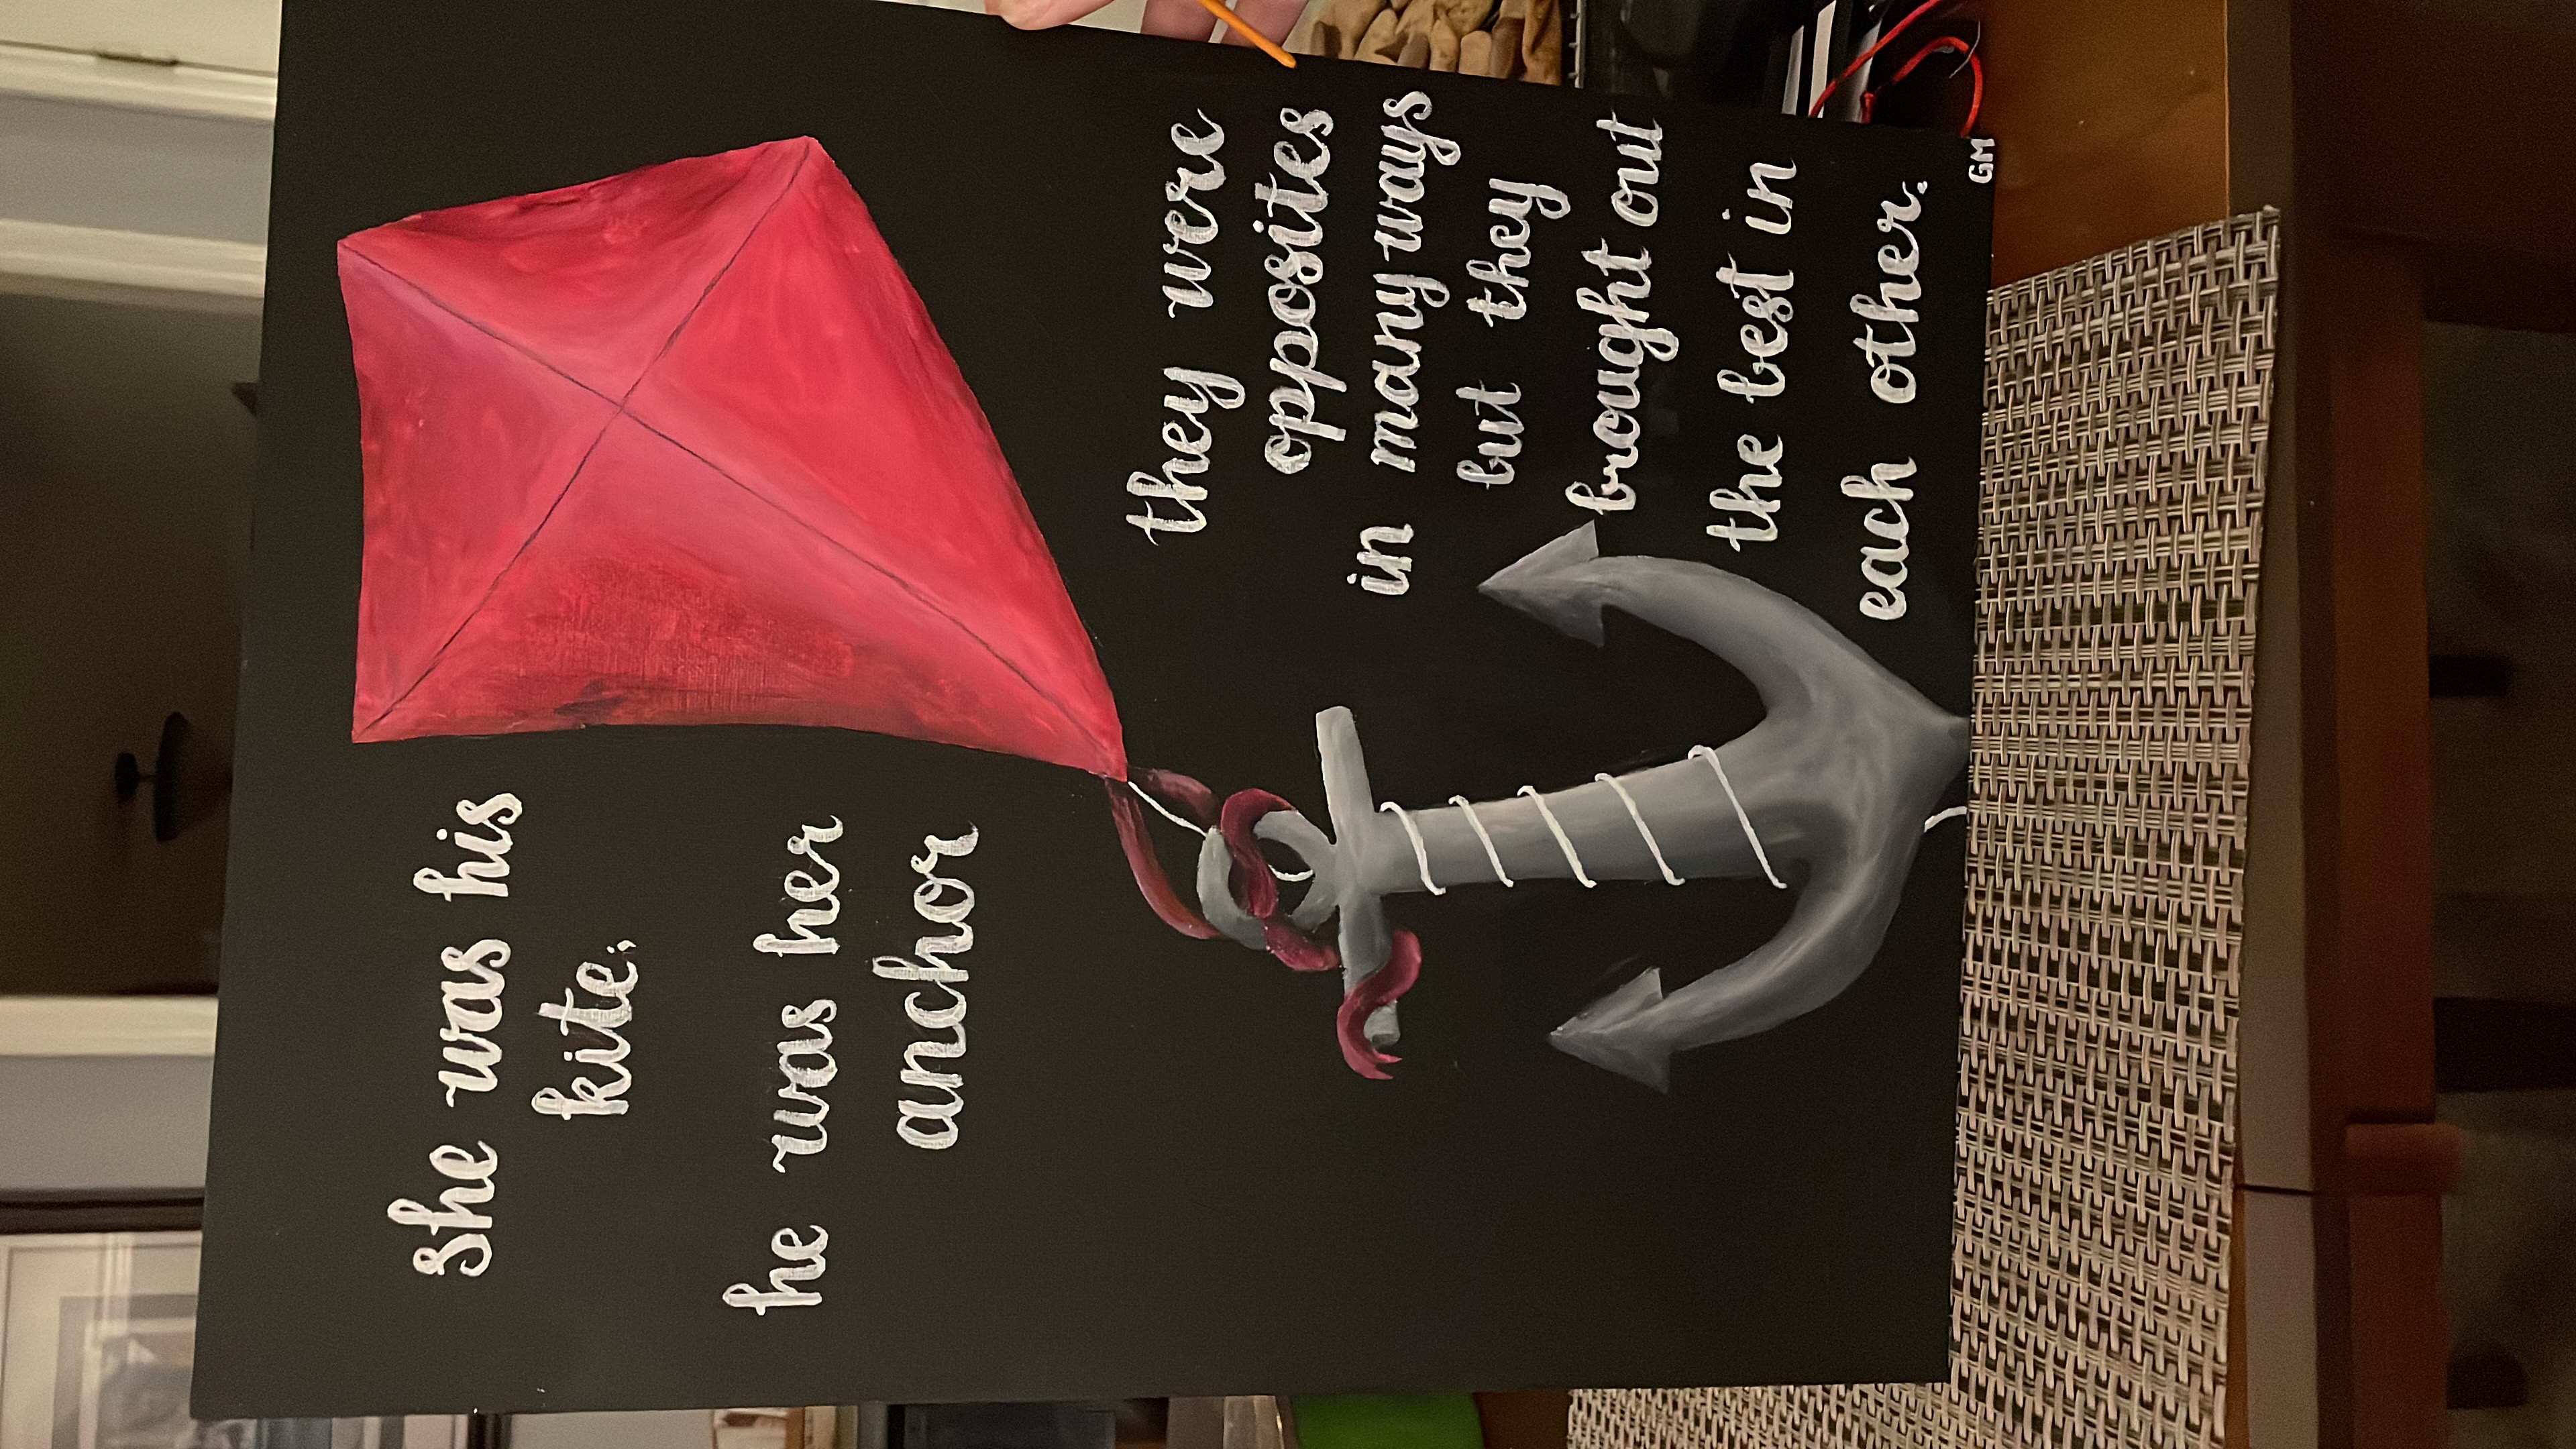 she was his
kite;
he was her
anchor
they were
opposites
in many ways
but they
brought out
the best in
each other.
GM